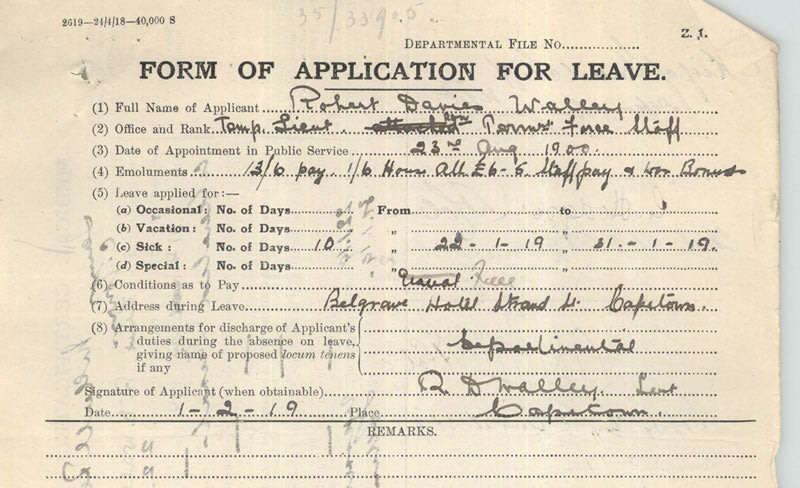 35/3390.5.
2619—24/4/18—40,000 S
Z. 1.
DEPARTMENTAL FILE NO.
FORM OF APPLICATION FOR LEAVE.
(1) Full Name of Applicant Robert Davies Walley
(2) Office and Rank Temp. Lieut. attached Force Staff
(3) Date of Appointment in Public Service 23rd Aug 1900.
(4) Emoluments 13/6 pay. 1/6 House All £6-5 Staff pay & War Bonus
(5) Leave applied for:—
(a) Occasional: No. of Days From to
(b) Vacation: No. of Days " "
(c) Sick: No. of Days 10 " 22-1-19 " 31-1-19.
(d) Special: No. of Days " "
(6) Conditions as to Pay Usual Full
(7) Address during Leave Belgrave Hotel Strand St. Capetown.
(8) Arrangements for discharge of Applicant's
duties during the absence on leave,
giving name of proposed locum tenens
if any
Departmental
Signature of Applicant (when obtainable) R D Walley. Lieut
Date 1-2-19 Place Capetown.
REMARKS.